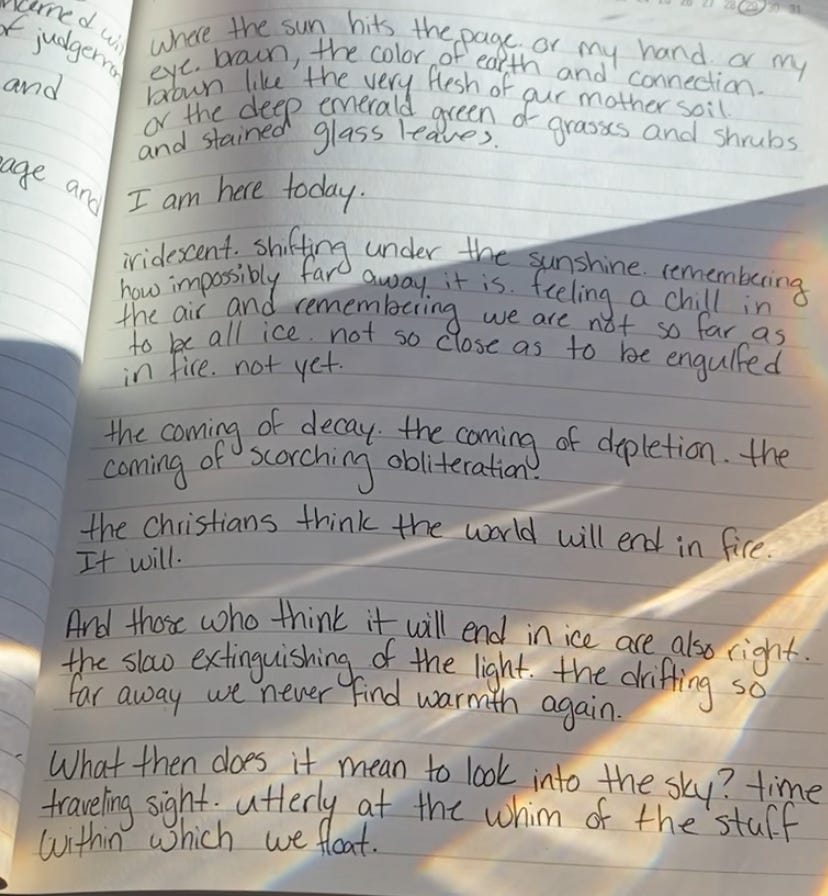 ncerned wi
of judgem
and
age and
26 27 28 29 31
Where the sun hits the page. or my hand. or my
eye. brown, the color of earth and connection.
brown like the very flesh of our mother soil.
or the deep emerald green of grasses and shrubs
and stained glass leaves.
I am here today.
iridescent. shifting under the sunshine. remembering
how impossibly far away it is. feeling a chill in
the air and remembering we are not so far as
to be all ice. not so close as to be engulfed
in fire. not yet.
the coming of decay. the coming of depletion. the
coming of scorching obliteration.
the christians think the world will end in fire.
It will.
And those who think it will end in ice are also right.
the slow extinguishing of the light. the drifting so
far away we never find warmth again.
What then does it mean to look into the sky? time
traveling sight. utterly at the whim of the stuff
within which we float.